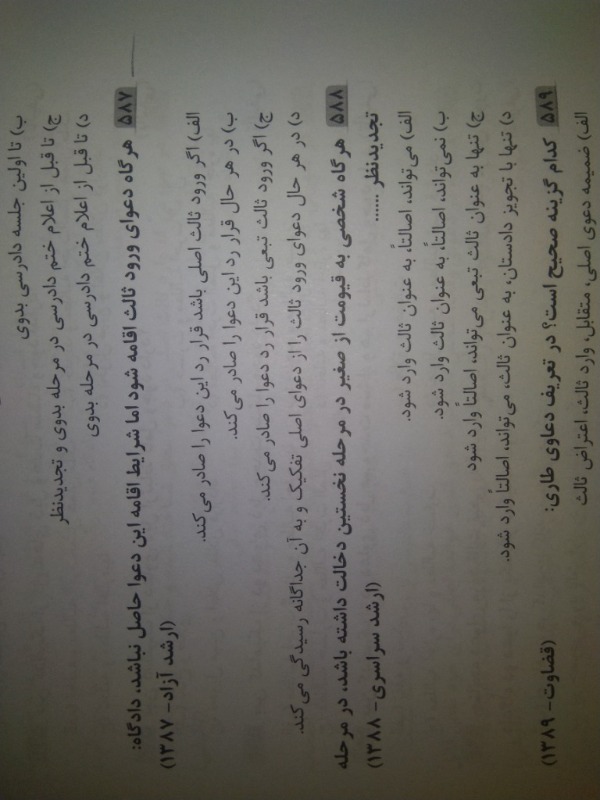 ب) تا اولین جلسه دادرسی بدوی
ج) تا قبل از اعلام ختم دادرسی در مرحله بدوی و تجدیدنظر
د) تا قبل از اعلام ختم دادرسی در مرحله بدوی
۵۸۷ هرگاه دعوای ورود ثالث اقامه شود اما شرایط اقامه این دعوا حاصل نباشد، دادگاه:
(ارشد آزاد- ۱۳۸۷)
الف) اگر ورود ثالث اصلی باشد قرار رد این دعوا را صادر می‌کند.
ب) در هر حال قرار رد این دعوا را صادر می‌کند.
ج) اگر ورود ثالث تبعی باشد قرار رد دعوا را صادر می‌کند.
د) در هر حال دعوای ورود ثالث را از دعوای اصلی تفکیک و به آن جداگانه رسیدگی می‌کند.
۵۸۸ هرگاه شخصی به قیومت از صغیر در مرحله نخستین دخالت داشته باشد، در مرحله
تجدیدنظر ...... (ارشد سراسری- ۱۳۸۸)
الف) می‌تواند، اصالتاً، به عنوان ثالث وارد شود.
ب) نمی‌تواند، اصالتاً، به عنوان ثالث وارد شود.
ج) تنها به عنوان ثالث تبعی می‌تواند، اصالتاً وارد شود
د) تنها با تجویز دادستان، به عنوان ثالث، می‌تواند، اصالتاً وارد شود.
۵۸۹ کدام گزینه صحیح است؟ در تعریف دعاوی طاری: (قضاوت- ۱۳۸۹)
الف) ضمیمه دعوی اصلی، متقابل، وارد ثالث، اعتراض ثالث